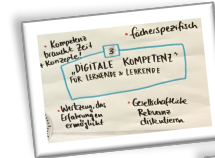 • Kompetenz
braucht Zeit
+ Konzepte!
• fächerspezifisch
3
„DIGITALE KOMPETENZ"
FÜR LERNENDE & LEHRENDE
• Werkzeug, das
Erfahrungen
ermöglicht
• Gesellschaftliche
Relevanz
diskutieren